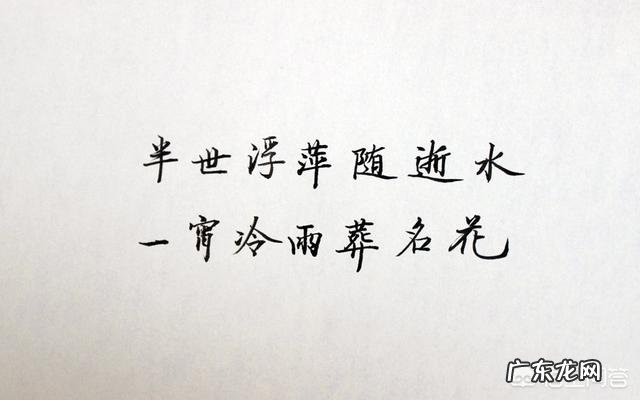 半世浮萍随逝水
一宵冷雨葬名花
广东龙网